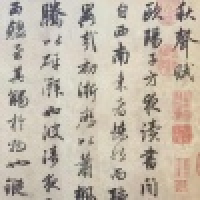 秋聲賦
歐陽子方夜讀書聞
自西南來者悚然而聽
異哉初淅瀝以蕭颯
騰以砰湃如波濤夜
而驟至其觸於物也鏦